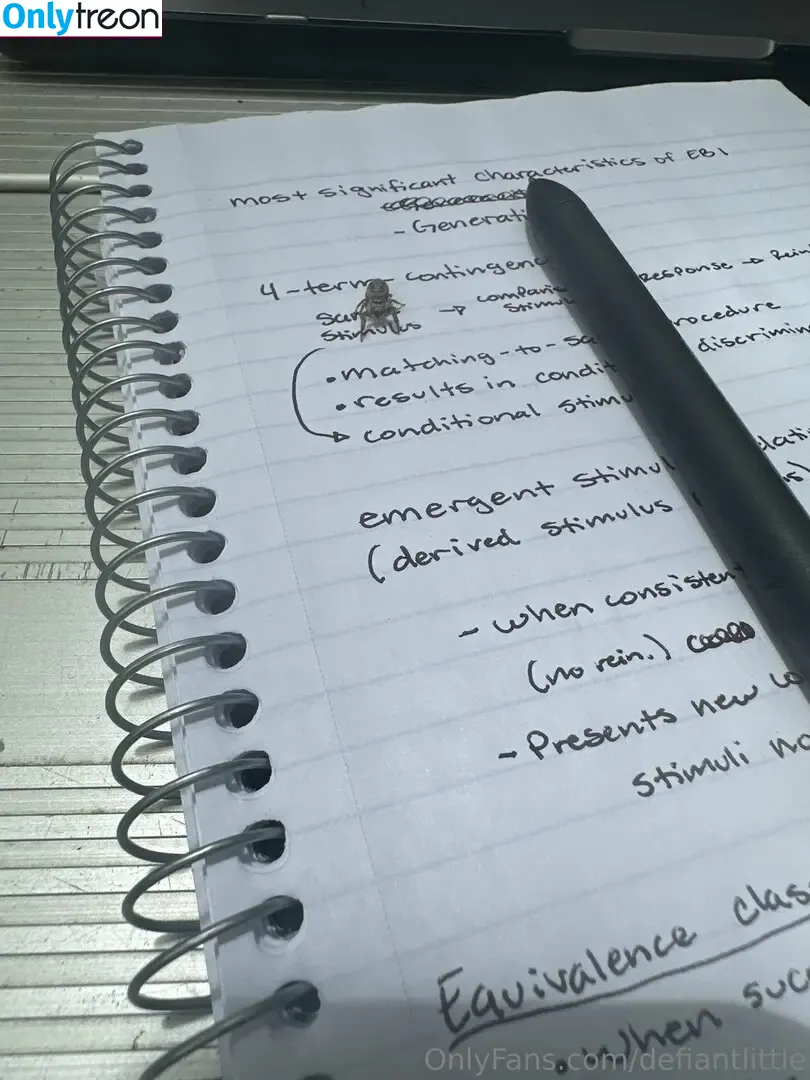 Onlytreon
most significant characteristics of EBI
- Generati
4-term contingenc
Stimulus → comparis stimul response → Rein
• matching-to-sa rocedure
• results in condit discrimin
conditional stimu
emergent stimul elati
(derived stimulus s)
- when consisten
(no rein.)
- Presents new co
stimuli no
Equivalence clas
• When succ
OnlyFans.com/defiantlittle